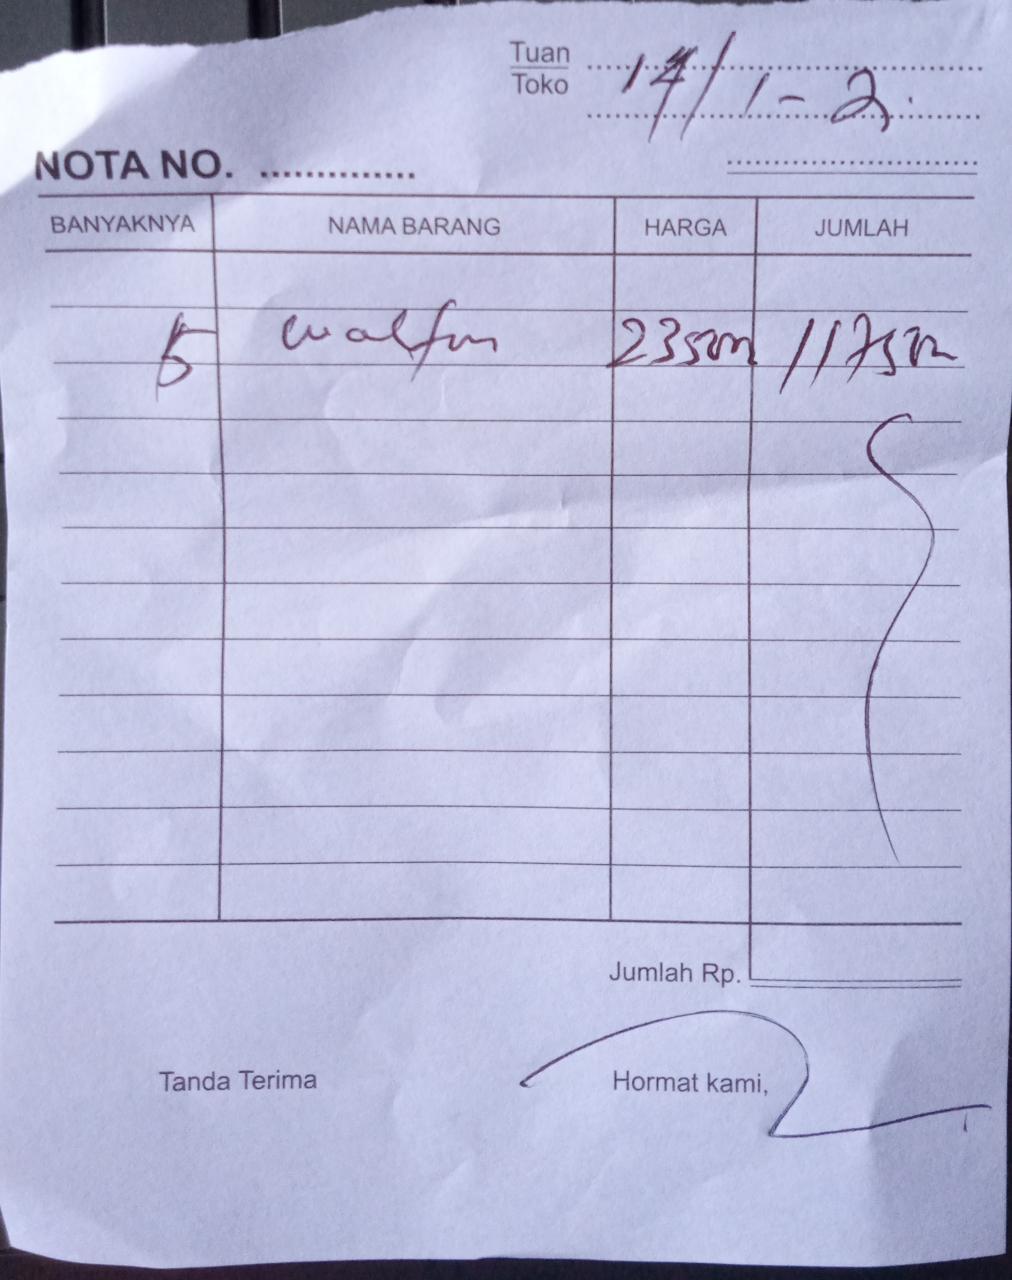 Tuan
Toko
14/1-2
NOTA NO. ..............
BANYAKNYA NAMA BARANG HARGA JUMLAH
5 23500 117500
Jumlah Rp.
Tanda Terima Hormat kami,